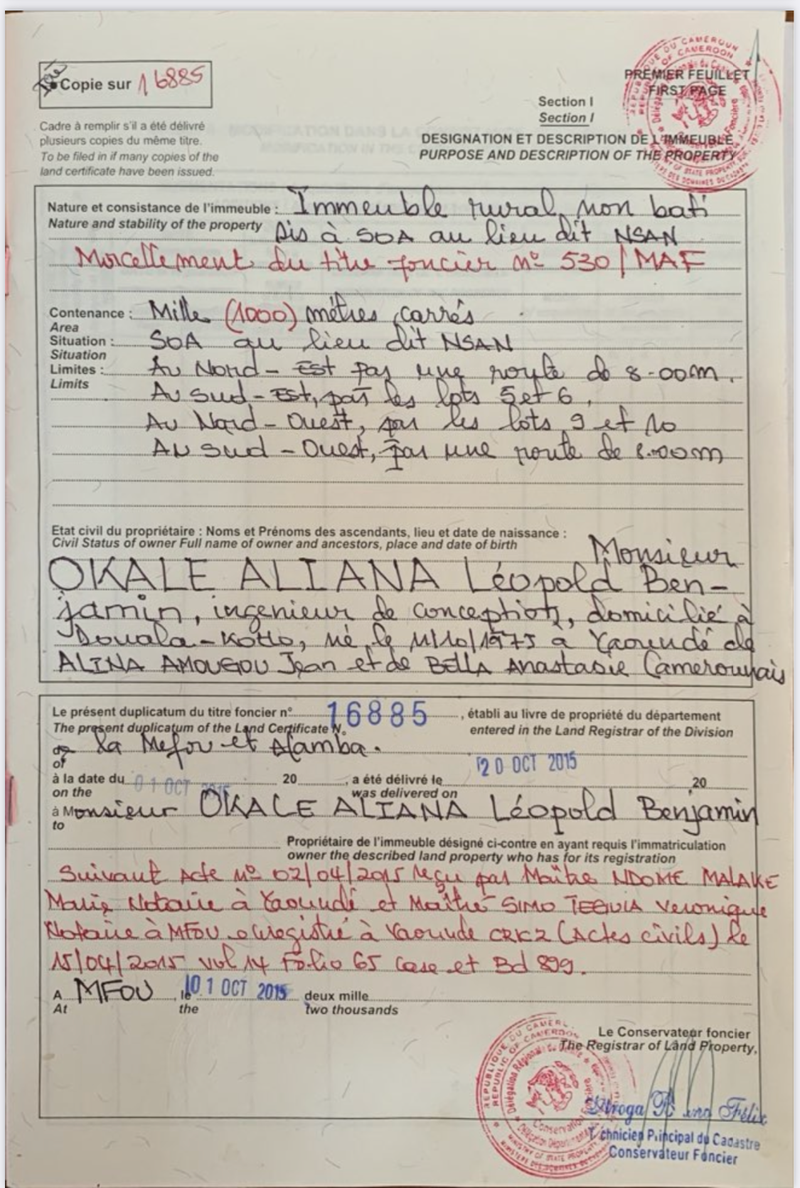 Copie sur 16885
PREMIER FEUILLET
FIRST PAGE
Section I
Section I
Cadre à remplir s'il a été délivré
plusieurs copies du même titre.
To be filed in if many copies of the
land certificate have been issued.
DESIGNATION ET DESCRIPTION DE L'IMMEUBLE
PURPOSE AND DESCRIPTION OF THE PROPERTY
Nature et consistance de l'immeuble : Immeuble rural, non bati
Nature and stability of the property sis à SOA au lieu dit NSAN
Morcellement du titre foncier n° 530/MAF
Contenance : Mille (1000) mètres carrés
Area
Situation : SOA au lieu dit NSAN
Situation
Limites : Au Nord-Est par une route de 8.00m.
Limits Au Sud-Est, par les lots 5 et 6.
Au Nord-Ouest, par les lots 9 et 10
Au Sud-Ouest, par une route de 8.00m
Etat civil du propriétaire : Noms et Prénoms des ascendants, lieu et date de naissance :
Civil Status of owner Full name of owner and ancestors, place and date of birth
Monsieur
OKALE ALIANA Léopold Ben-
jamin, ingenieur de conception, domicilié à
Douala-Kotto, né le 11/10/1975 à Yaoundé de
ALINA AMOUGOU Jean et de BELLA Anastasie Camerounais
Le présent duplicatum du titre foncier n° 16885, établi au livre de propriété du département
The present duplicatum of the Land Certificate N. entered in the Land Registrar of the Division
de la Mefou et Afamba.
of
à la date du 01 OCT 2015 20 , a été délivré le 20 OCT 2015 ,20
on the was delivered on
à Monsieur OKALE ALIANA Léopold Benjamin
to
Propriétaire de l'immeuble désigné ci-contre en ayant requis l'immatriculation
owner the described land property who has for its registration
Suivant Acte N° 02/04/2015 reçu par Maître NDOME MALAKE
Marie Notaire à Yaoundé et Maître SIMO TEGUIA Veronique
Notaire à MFOU enregistré à Yaoundé CRKZ (Actes civils) le
15/04/2015 vol 14 Folio 65 Case et Bd 899.
A MFOU , le 01 OCT 2015 deux mille
At the Two thousands
Le Conservateur foncier
The Registrar of Land Property,
Félix
Technicien Principal du Cadastre
Conservateur Foncier